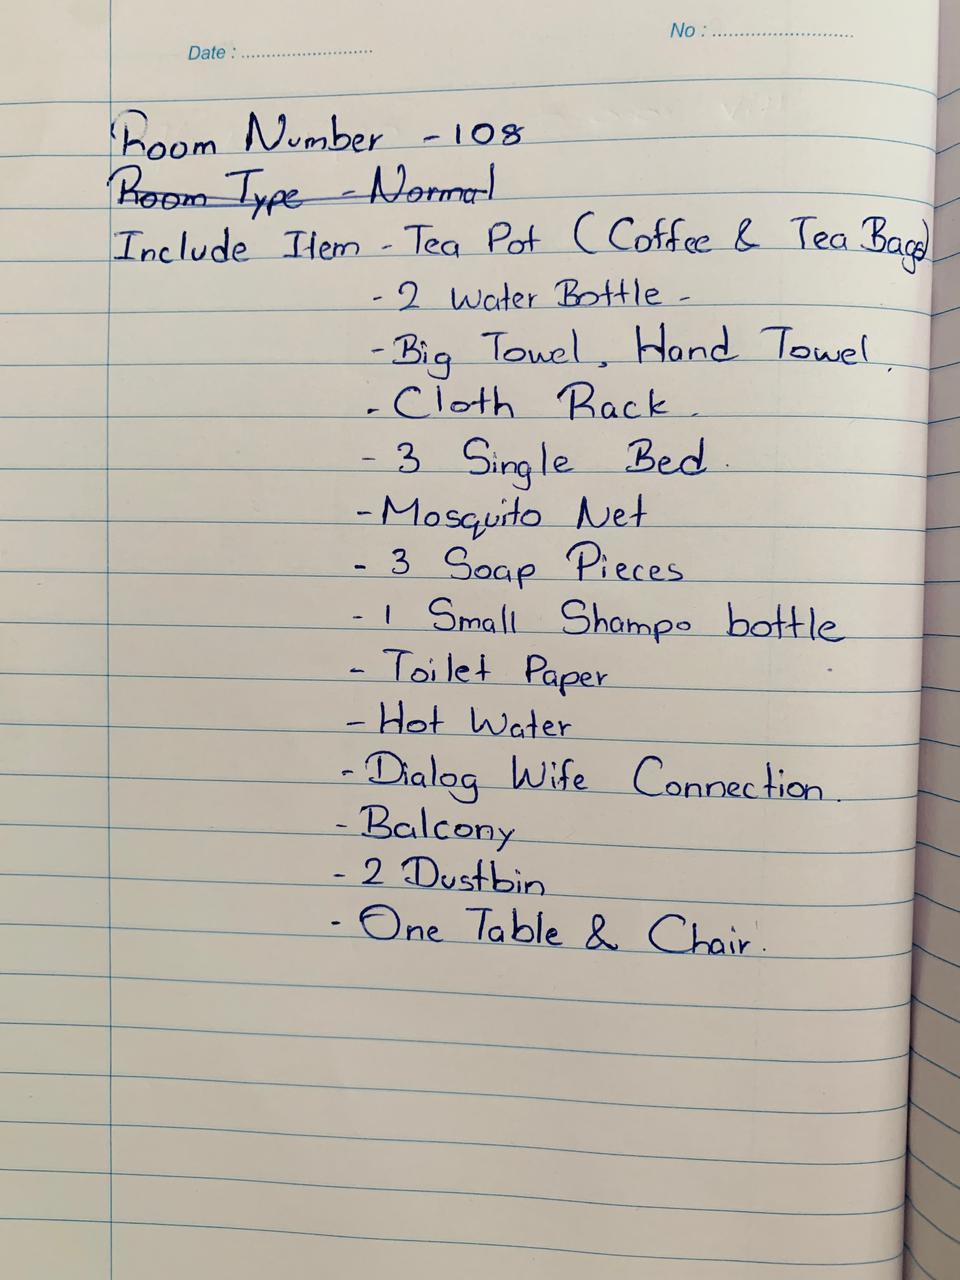 No : ............................
Date : ..........................
Room Number - 108
Room Type - Normal
Include Item - Tea Pot (Coffee & Tea Bags)
- 2 Water Bottle -
- Big Towel, Hand Towel.
- Cloth Rack.
- 3 Single Bed.
- Mosquito Net
- 3 Soap Pieces
- 1 Small Shampo bottle
- Toilet Paper
- Hot Water
- Dialog Wife Connection.
- Balcony
- 2 Dustbin
- One Table & Chair.